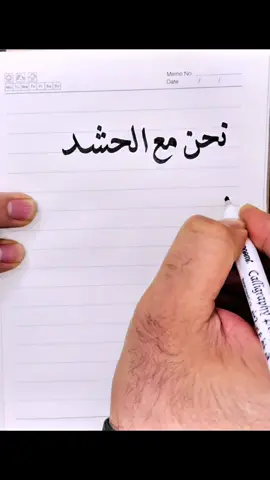 Memo No.
Date / /
Mo Tu We Th Fr Sa Su
نحن مع الحشد
Calligraphy